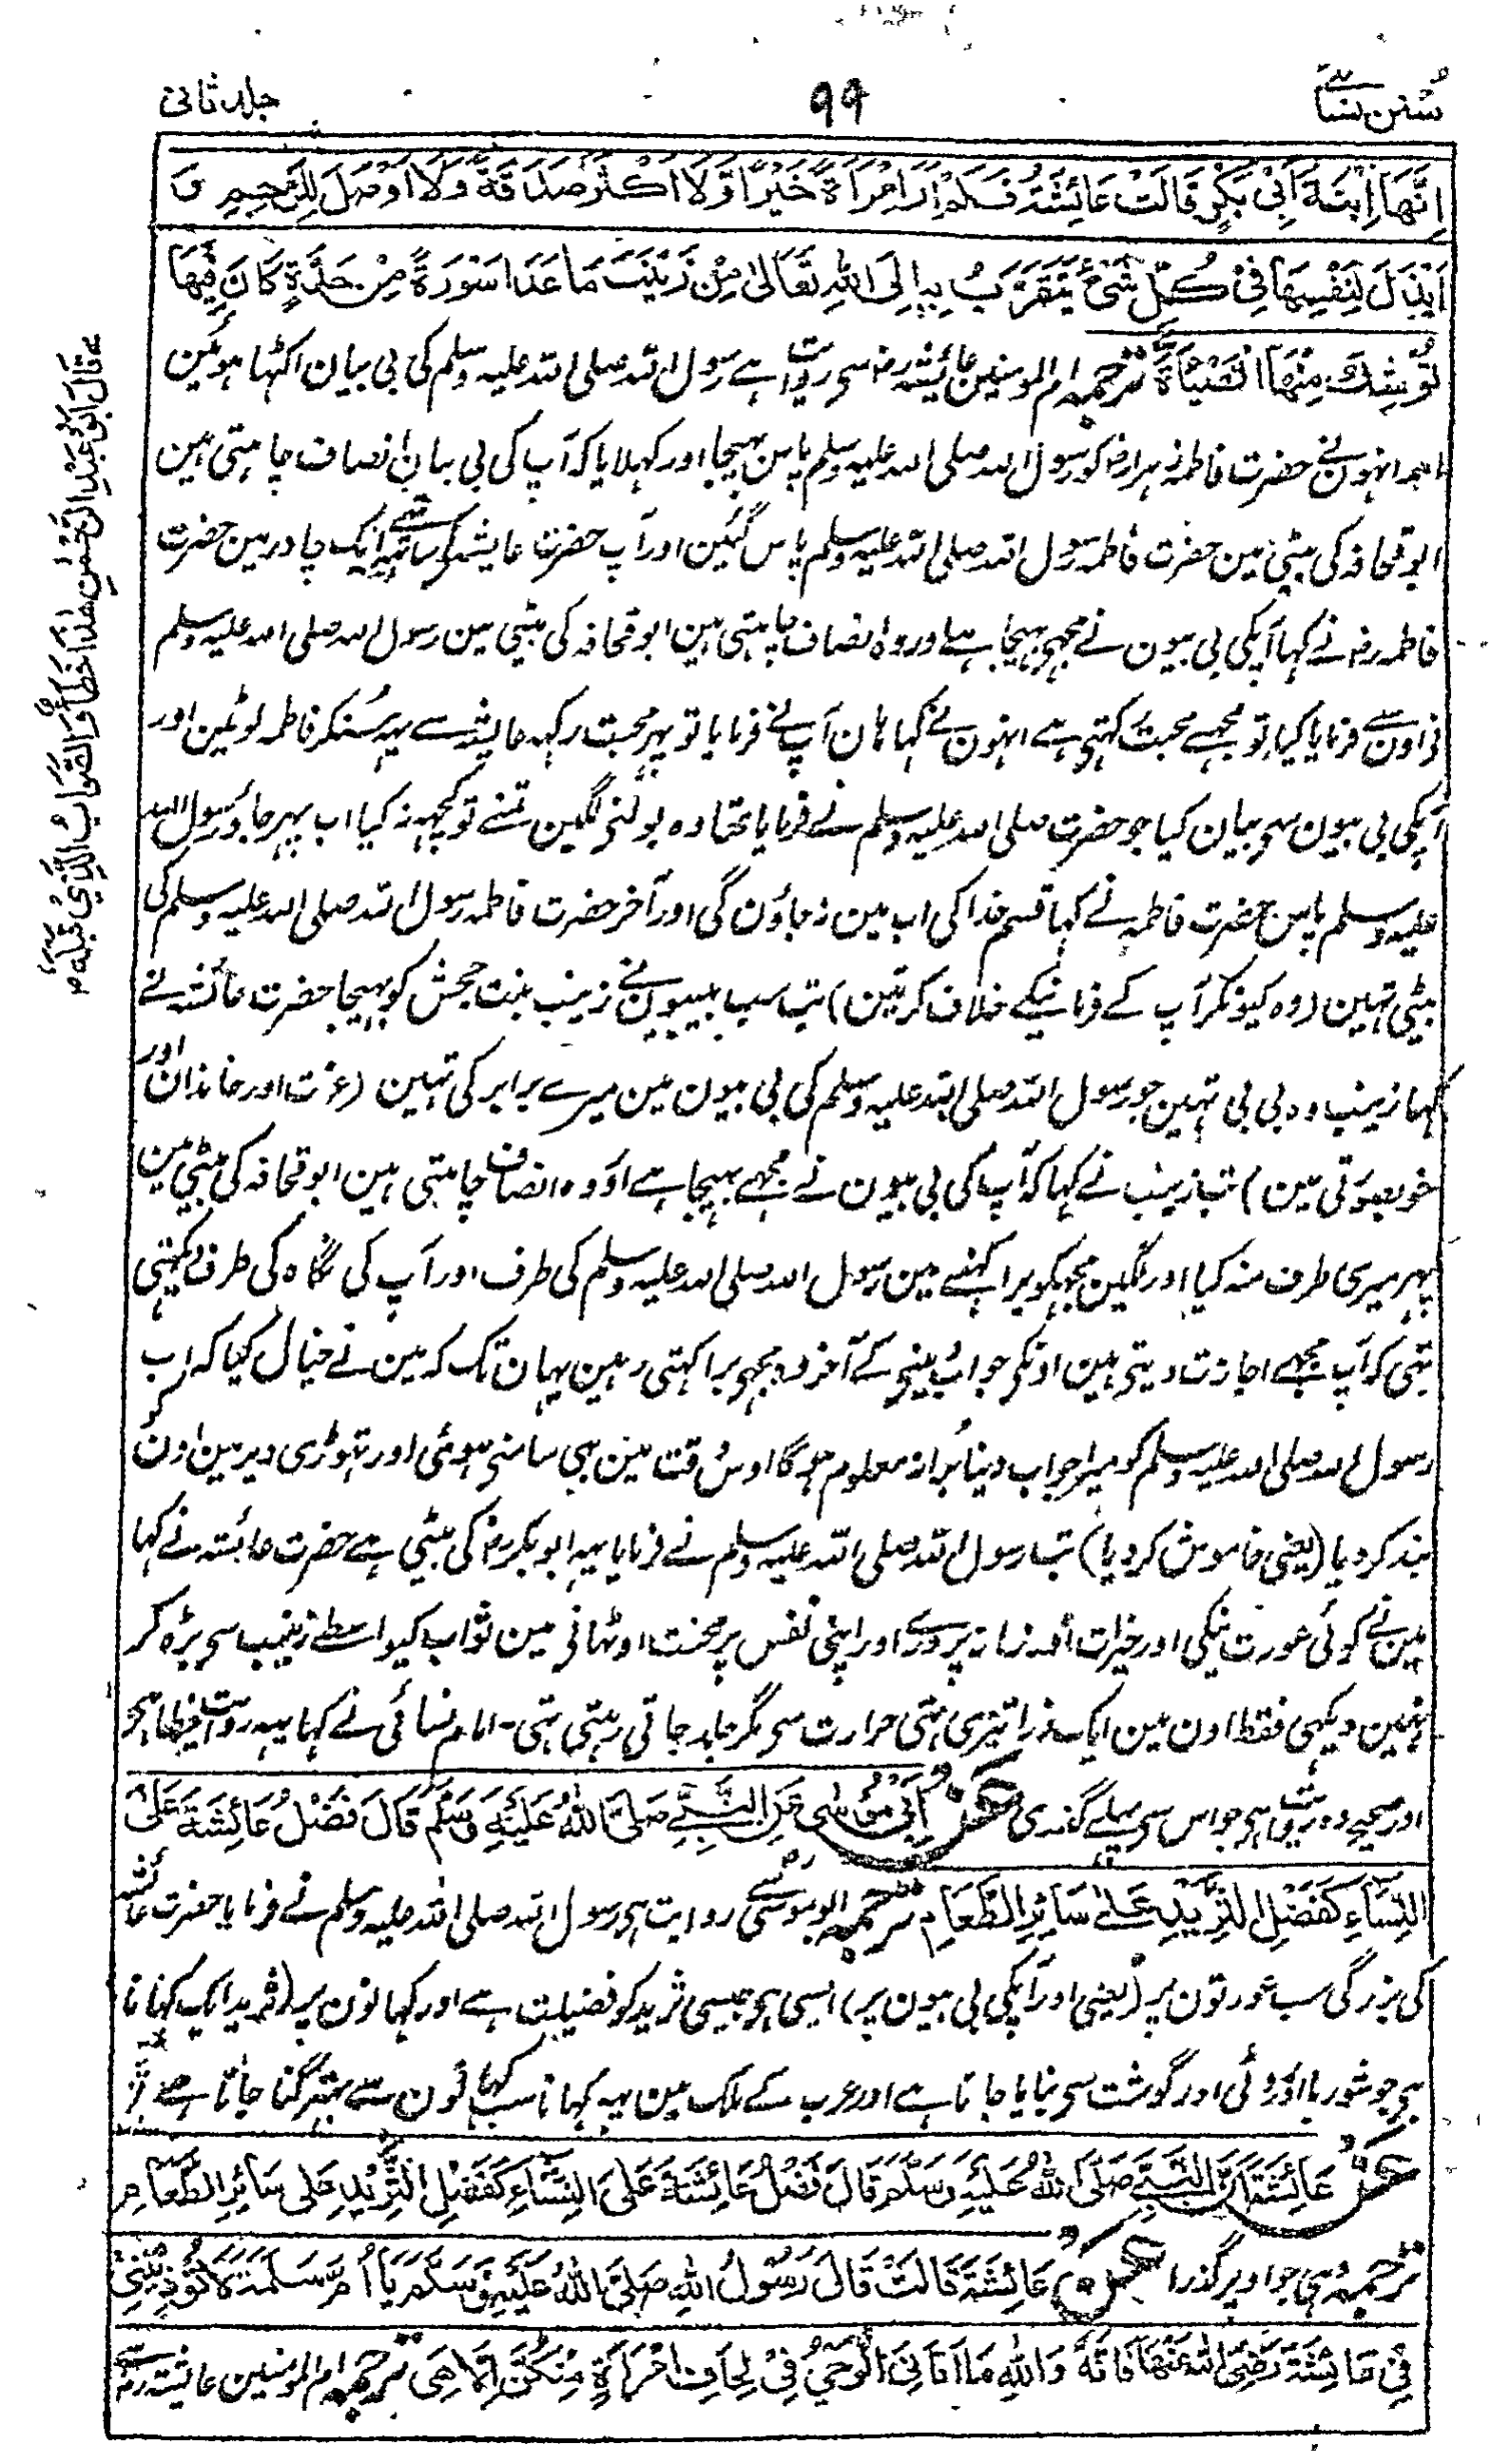 سُنن نسائی
۹۹
جلد ثانی
اِنَّهَا اِبْنَةُ اَبِیْ بَكْرٍ قَالَتْ عَائِشَةُ فَلَمْ اَرَ امْرَاَةً خَيْرًا وَّلَا اَكْثَرَ صَدَقَةً وَّلَا اَوْصَلَ لِلرَّحِمِ وَ
اَبْذَلَ لِنَفْسِهَا فِیْ كُلِّ شَیْءٍ يُتَقَرَّبُ بِهٖ اِلَی اللهِ تَعَالٰی مِنْ زَيْنَبَ مَا عَدَا سَوْرَةً مِنْ حِدَّةٍ كَانَ فِيْهَا
تُوْشِكُ مِنْهَا الْفَيْأَةَ ترجمہ ام المومنین عائیشہ رضہ سے روایت ہے رسول اللہ صلی اللہ علیہ وسلم کی بی بیان اکٹہا ہوئین
اور انہون نے حضرت فاطمہ زہرا رضہ کو رسول اللہ صلی اللہ علیہ وسلم پاس بہیجا اور کہلایا کہ آپ کی بی بیان انصاف چاہتی ہین
ابو قحافہ کی بیٹی مین حضرت فاطمہ رسول اللہ صلی اللہ علیہ وسلم پاس گئین اور آپ حضرت عایشہ کے ساتھ تھے ایک چادر مین حضرت
فاطمہ رضہ نے کہا آپکی بی بیون نے مجہے بہیجا ہے اور وہ انصاف چاہتی ہین ابو قحافہ کی بیٹی مین رسول اللہ صلی اللہ علیہ وسلم
نے اون سے فرمایا کیا تو مجہسے محبت رکہتی ہے انہون نے کہا ہان آپ نے فرمایا تو پہر محبت رکہہ عایشہ سے یہہ سُنکر فاطمہ لوٹین اور
آپکی بی بیون سے بیان کیا جو حضرت صلی اللہ علیہ وسلم نے فرمایا تھا وہ بولنے لگین تمنے تو کچہہ نہ کیا اب پہر جاؤ رسول اللہ
علیہ وسلم پاس حضرت فاطمہ نے کہا قسم خدا کی اب مین نہ جاؤن گی اور آخر حضرت فاطمہ رسول اللہ صلی اللہ علیہ وسلم کی
بیٹی تہین (وہ کیونکر آپ کے فرمانیکے خلاف کرتین) تب سب بیبیون نے زینب بنت جحش کو بہیجا حضرت عائشہ نے
کہا زینب وہ بی بی تہین جو رسول اللہ صلی اللہ علیہ وسلم کی بی بیون مین میرے برابر کی تہین (عزت اور خاندان اور
خوبصورتی مین) تب زینب نے کہا کہ آپ کی بی بیون نے مجہے بہیجا ہے اور وہ انصاف چاہتی ہین ابو قحافہ کی بیٹی مین
پہر میری طرف منہ کیا اور لگین مجہکو برا کہنے مین رسول اللہ صلی اللہ علیہ وسلم کی طرف اور آپ کی نگاہ کی طرف دیکہتی
تہی کہ آپ مجہے اجازت دیتے ہین اونکے جواب دینے کے آخر وہ مجہے برا کہتی رہین یہان تک کہ مین نے خیال کیا کہ اب
رسول اللہ صلی اللہ علیہ وسلم کو میرا جواب دینا بُرا نہ معلوم ہوگا اوس وقت مین بہی سامنے ہوئی اور تہوڑی دیر مین اون کو
بند کر دیا (یعنی خاموش کر دیا) تب رسول اللہ صلی اللہ علیہ وسلم نے فرمایا یہہ ابو بکر رضہ کی بیٹی ہے حضرت عائشہ نے کہا
مین نے کوئی عورت نیکی اور خیرات اور ناتا پروری اور اپنی نفس پر محنت اوٹھانے مین ثواب کیواسطے زینب سے بڑہ کر
نہین دیکہی فقط اون مین ایک ذرا تیزی تہی حرارت سے مگر جلد جاتی رہتی تہی - امام نسائی نے کہا یہہ روایت خطا ہے
اور صحیح وہ روایت ہے جو اس سے پہلے گذری عَنْ اَبِیْ مُوْسٰی عَنِ النَّبِیِّ صَلَّی اللهُ عَلَيْهِ وَسَلَّمَ قَالَ فَضْلُ عَائِشَةَ عَلَی
النِّسَاءِ كَفَضْلِ الثَّرِيْدِ عَلٰی سَائِرِ الطَّعَامِ ترجمہ ابو موسی رضہ سے روایت ہے رسول اللہ صلی اللہ علیہ وسلم نے فرمایا حضرت عائشہ
کی بزرگی سب عورتون پر (یعنی اور آپکی بی بیون پر) ایسی ہے جیسی ثرید کو فضیلت ہے اور کہانون پر (ثرید ایک کہانا
ہے جو شوربا اور روٹی اور گوشت سے بنایا جاتا ہے اور عرب کے ملک مین یہہ کہانا سب کہانون سے بہتر گنا جاتا ہے
عَنْ عَائِشَةَ اَنَّ النَّبِیَّ صَلَّی اللهُ عَلَيْهِ وَسَلَّمَ قَالَ فَضْلُ عَائِشَةَ عَلَی النِّسَاءِ كَفَضْلِ الثَّرِيْدِ عَلٰی سَائِرِ الطَّعَامِ
ترجمہ وہی جو اوپر گذرا عَنْ عَائِشَةَ قَالَتْ قَالَ رَسُوْلُ اللهِ صَلَّی اللهُ عَلَيْهِ وَسَلَّمَ يَا اُمَّ سَلَمَةَ لَا تُؤْذِيْنِیْ
فِیْ عَائِشَةَ رَضِیَ اللهُ عَنْهَا فَاِنَّهٗ وَاللهِ مَا اَتَانِیَ الْوَحْیُ فِیْ لِحَافِ امْرَاَةٍ مِنْكُنَّ اِلَّا هِیَ ترجمہ ام المومنین عائیشہ رضہ سے
قَالَ اَبُوْ عَبْدِ الرَّحْمٰنِ هٰذَا خَطَأٌ وَالصَّوَابُ الَّذِیْ قَبْلَهٗ